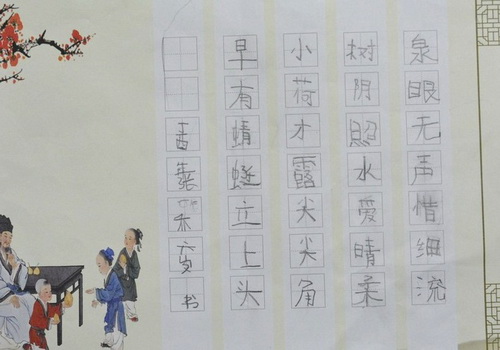 泉眼无声惜细流
树阴照水爱晴柔
小荷才露尖尖角
早有蜻蜓立上头
六岁书